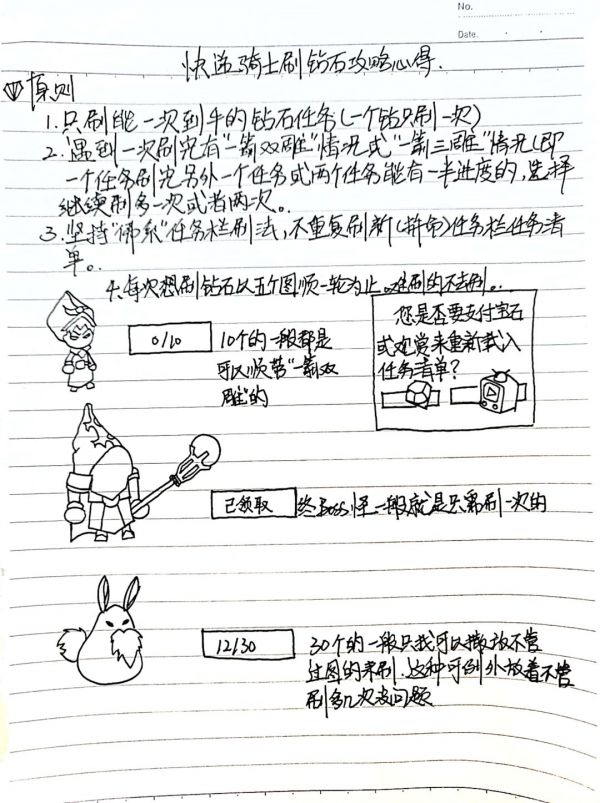 No.
Date.
快递骑士刷钻石攻略心得.
原则
1.只刷能一次到手的钻石任务(一个钻只刷一次)
2.遇到一次刷完有"一箭双雕"情况或"一箭三雕"情况(即
一个任务刷完另外一个任务或两个任务能有一半进度的,选择
继续刷多一次或者两次。
3.坚持"佛系"任务栏刷法,不重复刷新(拼命)任务栏任务清
单。
4.每次想刷钻石以五个图顺一轮为止。难刷的不去刷。
0/10
10个的一般都是
可以顺带"一箭双
雕"的
您是否要支付宝石
或观赏来重新载入
任务清单?
已领取
终Boss怪一般就是只需刷一次的
12/30
30个的一般只我可以撇放不管
过图的来刷.这种可例外放着不管
刷多几次没问题